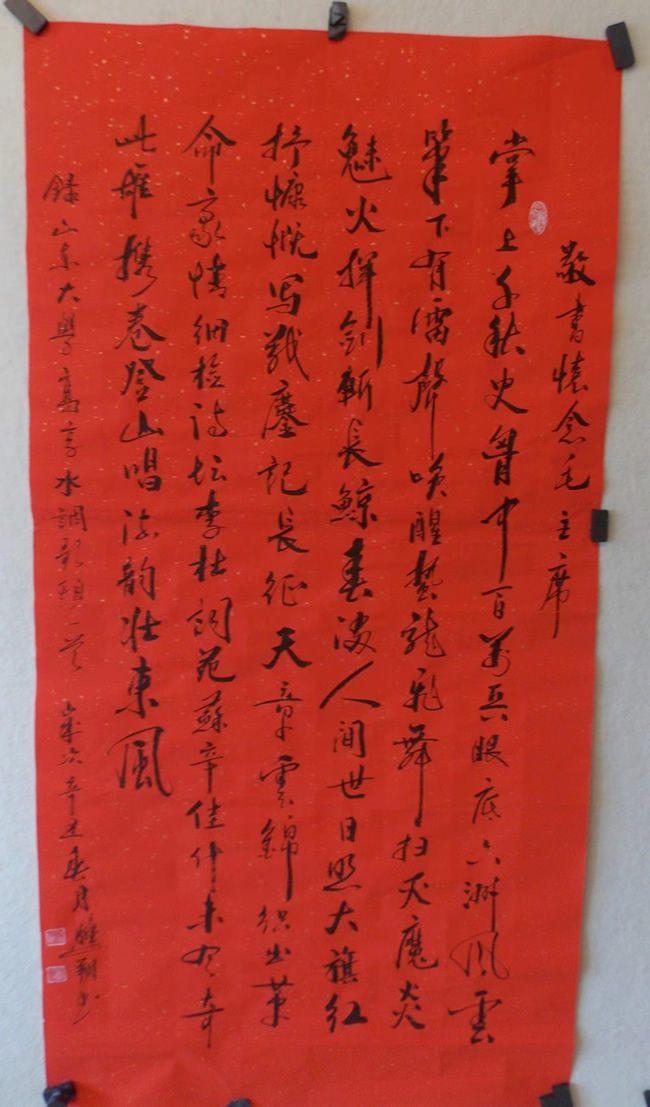 敬書懷念毛主席
掌上千秋史胷中百萬兵眼底六洲风雲
筆下有雷聲唤醒蛰龍飛舞扫灭魔炎
魅火揮剑斬長鲸春滿人间世日照大旗红
抒慷慨写戰塵記長征天章雲錦织出革
命豪情细检诗坛李杜词苑蘇辛佳什未奇
此雄携卷登山唱流韵壮東風
錄山东大學高亨水調歌頭一首 歲次辛丑春月翔书